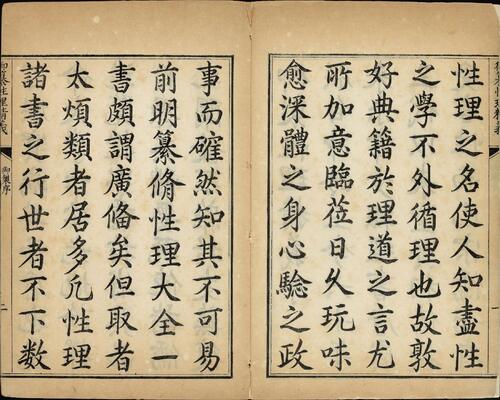 性理之名使人知盡性
之學不外循理也故敦
好典籍於理道之言尤
所加意臨莅日久玩味
愈深體之身心驗之政
事而確然知其不可易
前明纂脩性理大全一
書頗謂廣偹矣但取者
太煩類者居多凡性理
諸書之行世者不下數
御纂性理精義
御製序
二